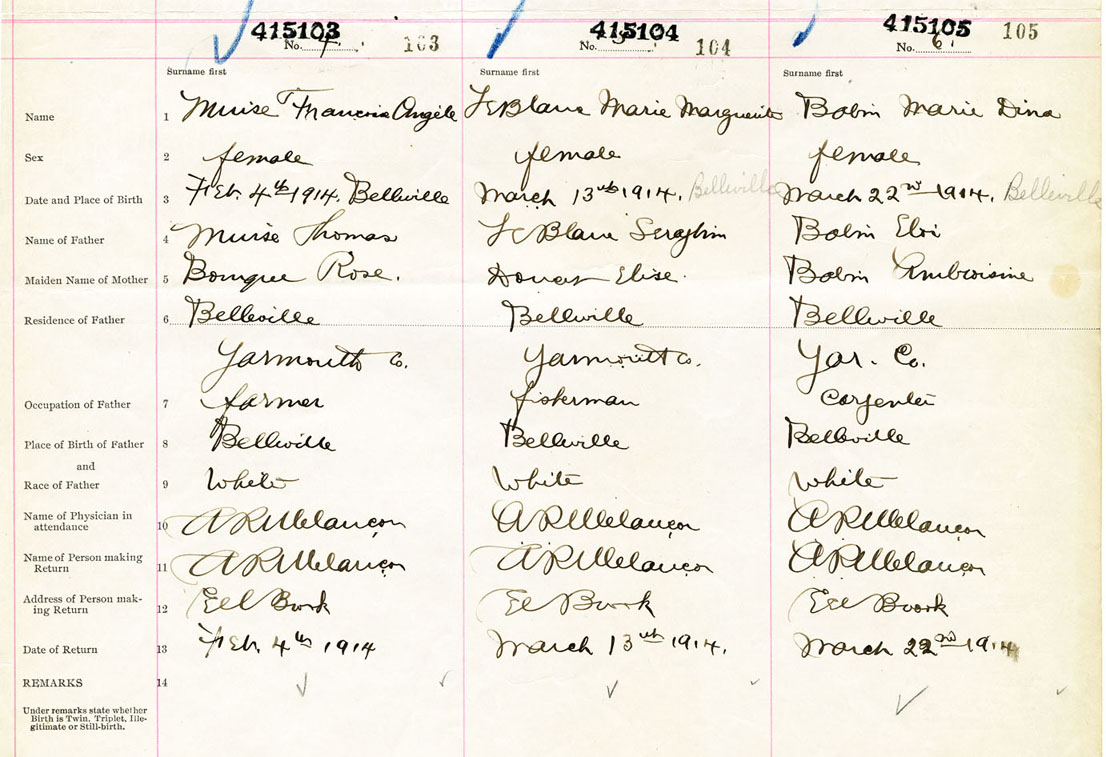 415103 415104 415105
No. 4 103 No. 104 No. 6 105
Surname first Surname first Surname first
Name 1 Muise Francis Angèle LeBlanc Marie Marguerite Bobin Marie Dina
Sex 2 female female female
Date and Place of Birth 3 Feb. 4th 1914. Belleville March 13th 1914. Belleville March 22nd 1914. Belleville
Name of Father 4 Muise Thomas LeBlanc Seraphin Bobin Eloi
Maiden Name of Mother 5 Bourque Rose. Doucet Elise. Bobin Ambroisine
Residence of Father 6 Belleville Belleville Belleville
Yarmouth Co. Yarmouth Co. Yar. Co.
Occupation of Father 7 farmer fisherman Carpenter
Place of Birth of Father 8 Belleville Belleville Belleville
and
Race of Father 9 White White White
Name of Physician in
attendance 10 A R Melançon A R Melançon A R Melançon
Name of Person making
Return 11 A R Melançon A R Melançon A R Melançon
Address of Person mak-
ing Return 12 Eel Brook Eel Brook Eel Brook
Date of Return 13 Feb. 4th 1914 March 13th 1914. March 22nd 1914
REMARKS 14
Under remarks state whether
Birth is Twin, Triplet, Ille-
gitimate or Still-birth.